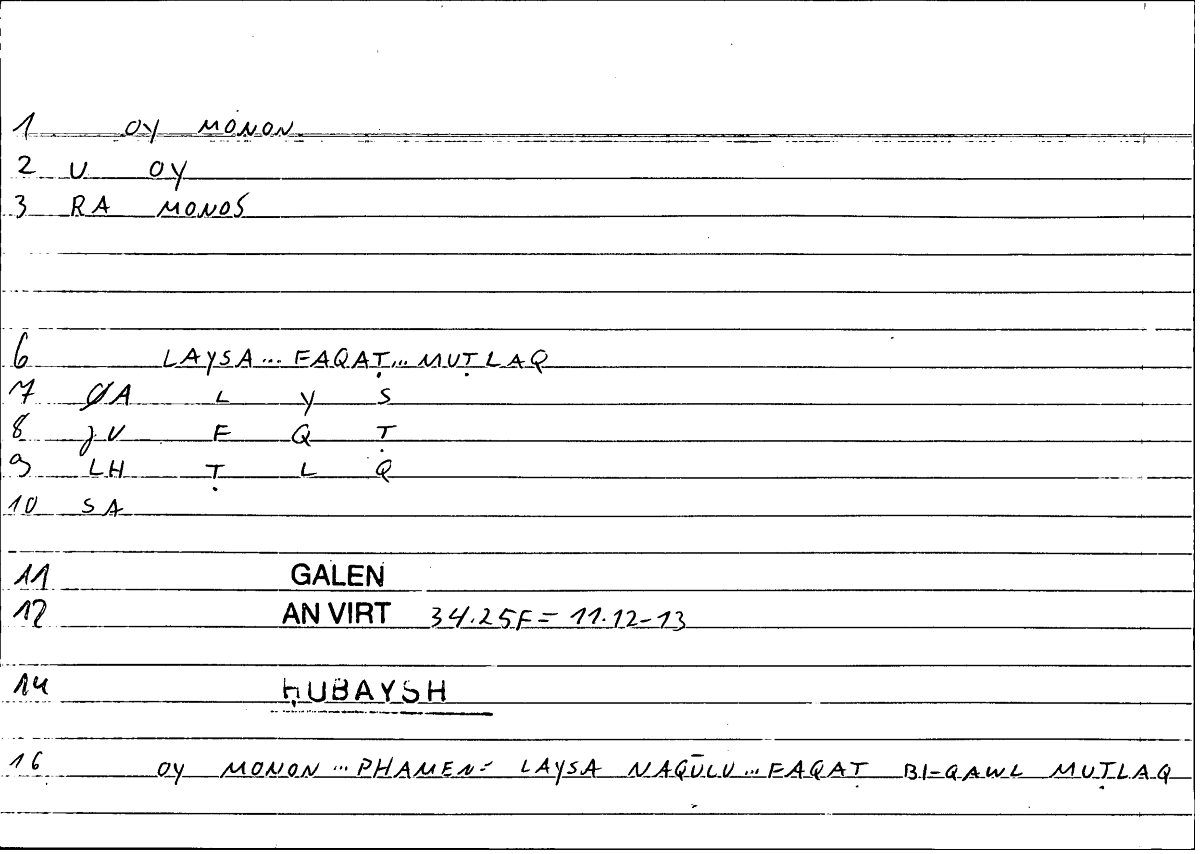 1 OY MONON
2 U OY
3 RA MONOS
6 LAYSA... FAQAṬ... MUṬLAQ
7 ØA L Y S
8 JU F Q Ṭ
9 LH Ṭ L Q
10 SA
11 GALEN
12 AN VIRT 34.25F = 11.12-13
14 ḤUBAYSH
16 OY MONON ... PHAMEN = LAYSA NAQŪLU ... FAQAṬ BI-QAWL MUṬLAQ